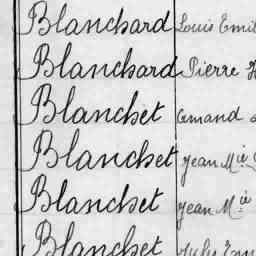 Blanchard Louis Emil
Blanchard Pierre H
Blanchet Amand
Blanchet Jean Mie
Blanchet Jean Mie
Blanchet Julie Em